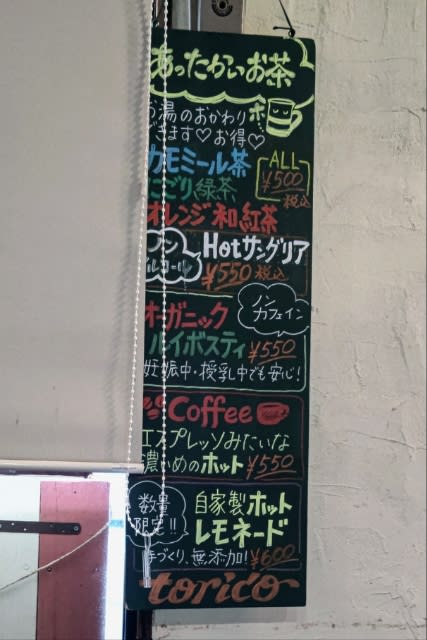 あったかいお茶
お湯のおかわり
できます♡お得♡
ホッ
カモミール茶
にごり緑茶
オレンジ和紅茶
ALL
¥500
税込
ノン
アルコール
Hotサングリア
¥550 税込
オーガニック
ルイボスティ
ノン
カフェイン
¥550
妊娠中・授乳中でも安心!
Coffee
エスプレッソみたいな
濃いめのホット ¥550
数量
限定!!
自家製ホット
レモネード
手づくり、無添加! ¥600
torico